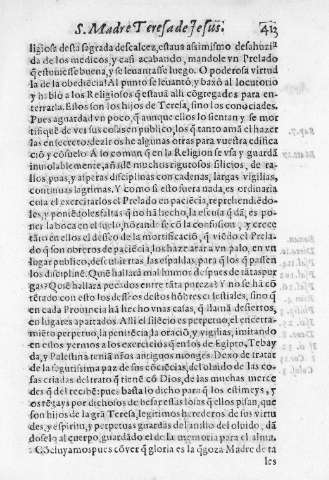 S. Madre Teresa de Jesus. 413
ligiosa desta sagrada descalcez, estaua asimismo desahuzia
da de los medicos, y casi acabando, mandole vn Prelado
q̃ estuuiesse buena, y se leuantasse luego. O poderosa virtud
la de la obediencia! Al punto se leuantò y baxò al locutorio
y hablò a los Religiosos q̃ estauã alli cõgregados para en-
terrarla. Ellos son los hijos de Teresa, sino los conociades.
Pues aguardad vn poco, q̃ aunque ellos lo sientan y se mor
tifiquẽ de ver sus cosas en publico, los q̃ tanto amã el hazer
las en secreto: dezir os he algunas otras para vuestra edifica
ciõ y cõsuelo. A lo comun q̃ en la Religion se vsa y guardã
inuiolablemente, añadẽ muchos rigurosos silicios, de ra-
llos, poas, y asperas disciplinas con cadenas, largas vigilias,
continuas lagrimas. Y como si esto fuera nada, es ordinaria
cosa el exercitarlos el Prelado en paciẽcia, reprehendiẽdo-
les, y poniẽdoles faltas q̃ no hã hecho, la escusa q̃ dã, es po-
ner la boca en el suelo, hõrando se cõ la confusion, y crece
tãto en ellos el desseo de la mortificaciõ, q̃ viẽdo el Prela-
do q̃ son obreros de paciẽcia, los haze atar a vn palo, en vn
lugar publico, descubiertas las espaldas, para q̃ los q̃ passen
los disciplinẽ. Quiẽ hallarà mal humor despues de tãtas pur
gas? Quiẽ hallarà pecados entre tãta pureza? Y no se hã cõ
tẽtado con esto los desseos destos hõbres celestiales, sino q̃
en cada Prouincia hã hecho vnas casas, q̃ llamã desiertos,
en lugares apartados. Alli el silẽcio es perpetuo, el encerra-
miẽto perpetuo, la penitẽcia, la oraciõ, y vigilias, imitando
en estos yermos a los exercicios q̃ en los de Egipto, Tebay
da, y Palestina teniã nr̃os antiguos monges. Dexo de tratar
de la segutissima paz de sus cõciẽcias, del oluido de las co-
sas criadas, del trato q̃ tienẽ cõ Dios, de las muchas merce
des q̃ del recibẽ: pues basta lo dicho para q̃ los estimeys, y
os tẽgays por dichosos de besarles los pies: q̃ estos q̃ los pisan,
son hijos de la grã Teresa, legitimos herederos de sus virtu
des, y espiritu, y perpetuas guardas del anillo del oluido, dã
doselo al cuerpo, guardãdo el de la memoria para el alma.
Cõcluyamos pues cõ ver q̃ gloria es la q̃ goza Madre de ta
les